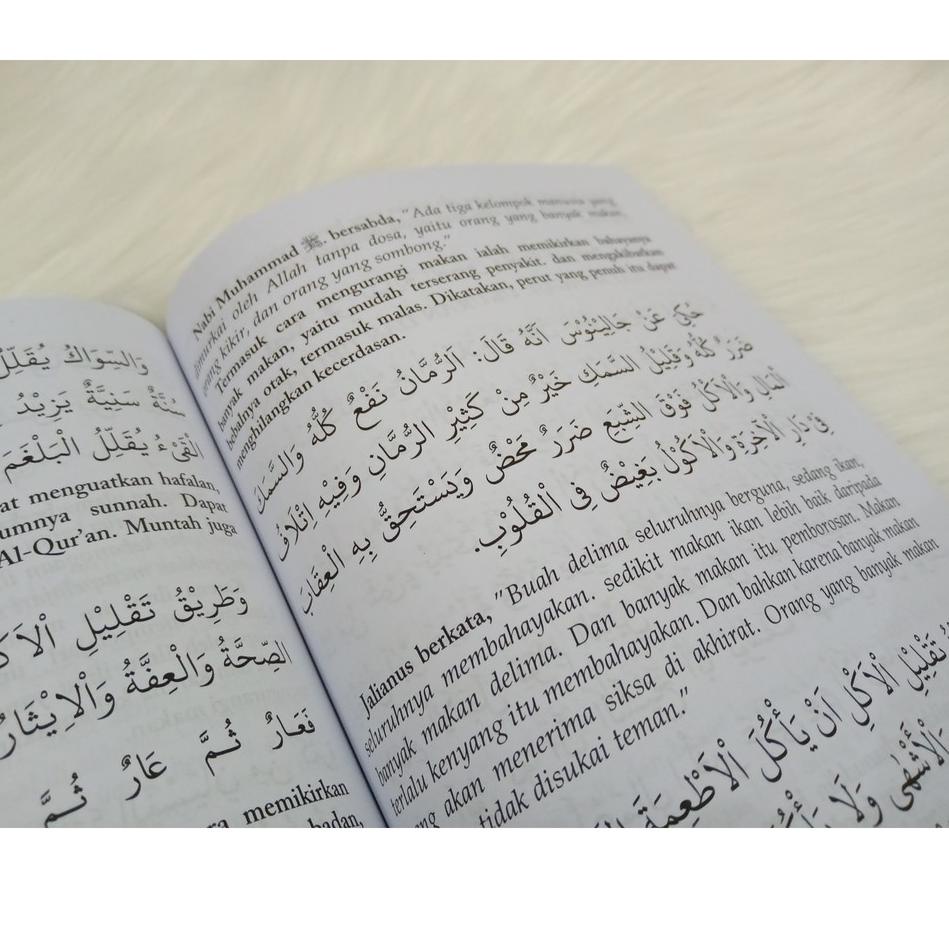 وَالسِّوَاكُ يُقَلِّلُ
سُنَّةٌ سَنِيَّةٌ يَزِيْدُ
الْقَيْءُ يُقَلِّلُ الْبَلْغَمَ
at menguatkan hafalan,
umnya sunnah. Dapat
Al-Qur'an. Muntah juga
وَطَرِيْقُ تَقْلِيْلِ اْلاَ
الصِّحَّةُ وَالْعِفَّةُ وَاْلاِيْثَارُ
فَعَارٌ ثُمَّ عَارٌ ثُمَّ
memikirkan
badan,
Nabi Muhammad ﷺ. bersabda, "Ada tiga kelompok manusia yang
dimurkai oleh Allah tanpa dosa, yaitu orang yang banyak makan,
orang kikir, dan orang yang sombong."
Termasuk cara mengurangi makan ialah memikirkan bahayanya
banyak makan, yaitu mudah terserang penyakit. dan mengakibatkan
bebalnya otak, termasuk malas. Dikatakan, perut yang penuh itu dapat
menghilangkan kecerdasan.
حُكِيَ عَنْ جَالِيْنُوْسَ اَنَّهُ قَالَ: اَلرُّمَّانُ نَفْعٌ كُلُّهُ وَالسَّمَكُ
ضَرَرٌ كُلُّهُ وَقَلِيْلُ السَّمَكِ خَيْرٌ مِنْ كَثِيْرِ الرُّمَّانِ وَفِيْهِ اِتْلاَفُ
الْمَالِ وَاْلاَكْلُ فَوْقَ الشِّبَعِ ضَرَرٌ مَحْضٌ وَيَسْتَحِقُّ بِهِ الْعِقَابَ
فِيْ دَارِ اْلآخِرَةِ وَاْلاَكُوْلُ بَغِيْضٌ فِي الْقُلُوْبِ.
Jalianus berkata, "Buah delima seluruhnya berguna, sedang ikan,
seluruhnya membahayakan. sedikit makan ikan lebih baik daripada
banyak makan delima. Dan banyak makan itu pemborosan. Makan
terlalu kenyang itu membahayakan. Dan bahkan karena banyak makan
akan menerima siksa di akhirat. Orang yang banyak makan
tidak disukai teman."
تَقْلِيْلِ اْلاَكْلِ اَنْ يَأْكُلَ اْلاَطْعِمَةَ